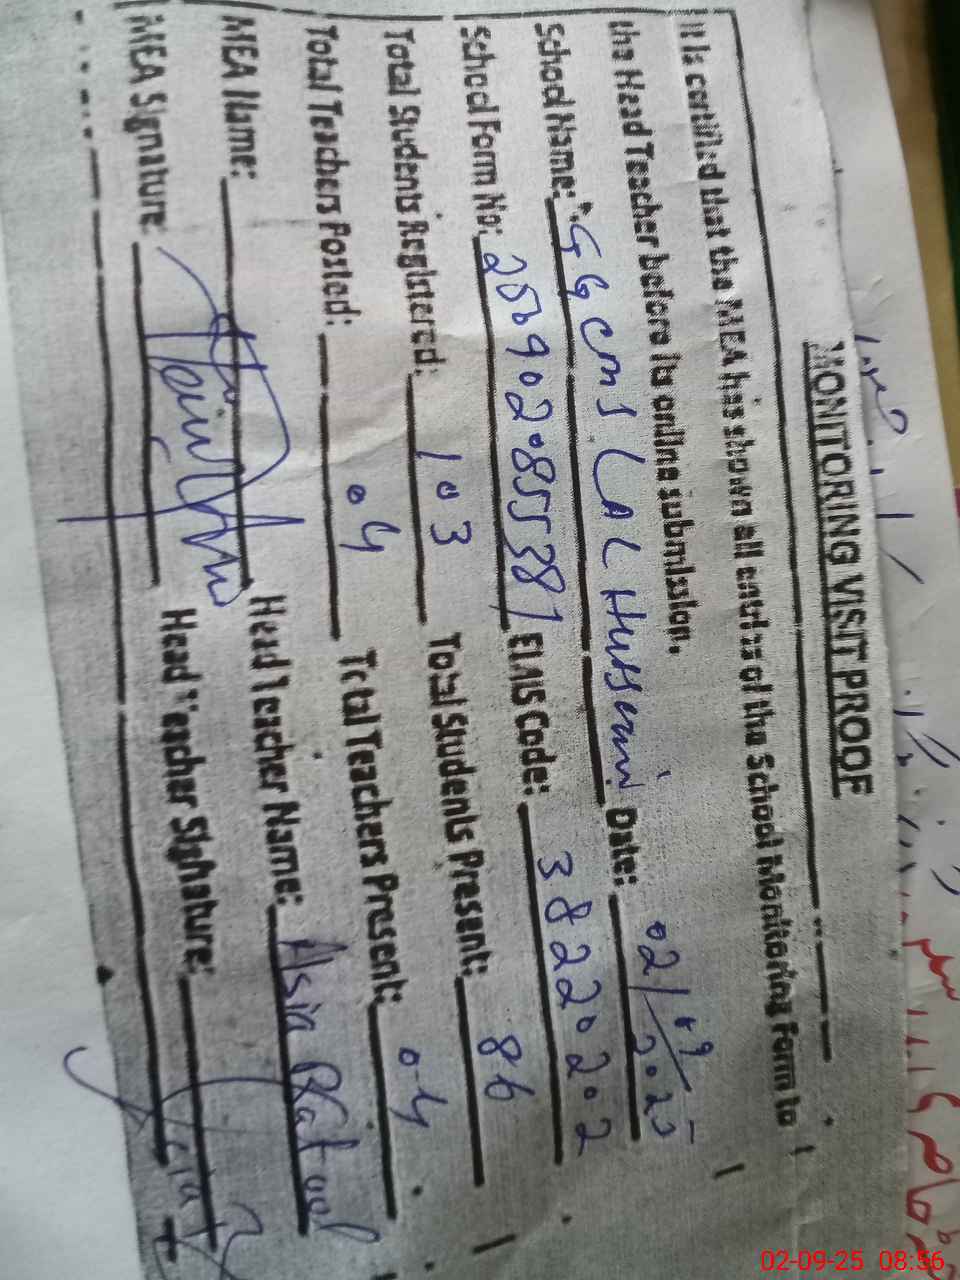 MONITORING VISIT PROOF
It is certified that the MEA has shown all entries of the School Monitoring Form to
the Head Teacher before its online submission.
School Name: GGCMS LAL Hussaini Date: 02/09/2025
School Form No: EMIS Code: 38220202
Total Students Registered: 103 Total Students Present: 86
Total Teachers Posted: 04 Total Teachers Present: 04
MEA Name: Head Teacher Name: Asia Batool
MEA Signature: Head Teacher Signature: Asia
02-09-25 08:56